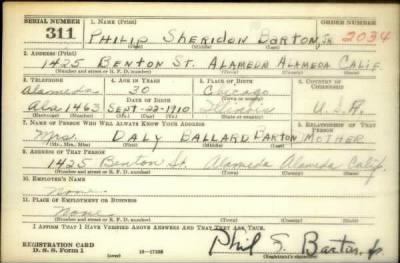 SERIAL NUMBER 1. NAME (Print)
311 PHILIP SHERIDON BARTON, JR. 2034
(First) (Middle) (Last)
2. ADDRESS (Print)
1425 BENTON ST. ALAMEDA ALAMEDA CALIF.
(Number and street or R. F. D. number) (Town) (County) (State)
3. TELEPHONE 4. AGE IN YEARS 5. PLACE OF BIRTH 6. COUNTRY OF CITIZENSHIP
Alameda 30 Chicago
DATE OF BIRTH (Town or county)
1463 SEPT-22-1910 Illinois U.S.A.
(Mo.) (Day) (Yr.) (State or country)
7. NAME OF PERSON WHO WILL ALWAYS KNOW YOUR ADDRESS 8. RELATIONSHIP OF THAT PERSON
Mrs. DALY BALLARD BARTON MOTHER
(Mr., Mrs., Miss) (First) (Middle) (Last)
9. ADDRESS OF THAT PERSON
1425 Benton St. Alameda Alameda Calif.
(Number and street or R. F. D. number) (Town) (County) (State)
10. EMPLOYER'S NAME
None
11. PLACE OF EMPLOYMENT OR BUSINESS
None
(Number and street or R. F. D. number) (Town) (County) (State)
I AFFIRM THAT I HAVE VERIFIED ABOVE ANSWERS AND THAT THEY ARE TRUE.
REGISTRATION CARD
D. S. S. Form 1 16—17105 Phil S. Barton, Jr.
(Registrant's signature)